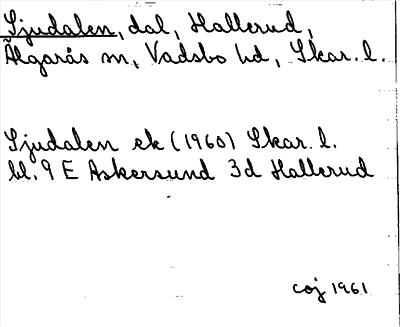 Sjudalen, dal, Hallerud,
Älgarås sn, Vadsbo hd, Skar. l.
Sjudalen ek (1960) Skar. l.
bl. 9 E Askersund 3d Hallerud
coj 1961